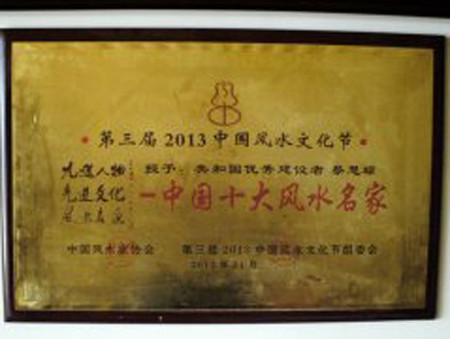 第三届2013中国风水文化节
先进人物
先进文化
授予：共和国优秀建设者
一中国十大风水名家
中国风水家协会
第三届2013中国风水文化节组委会